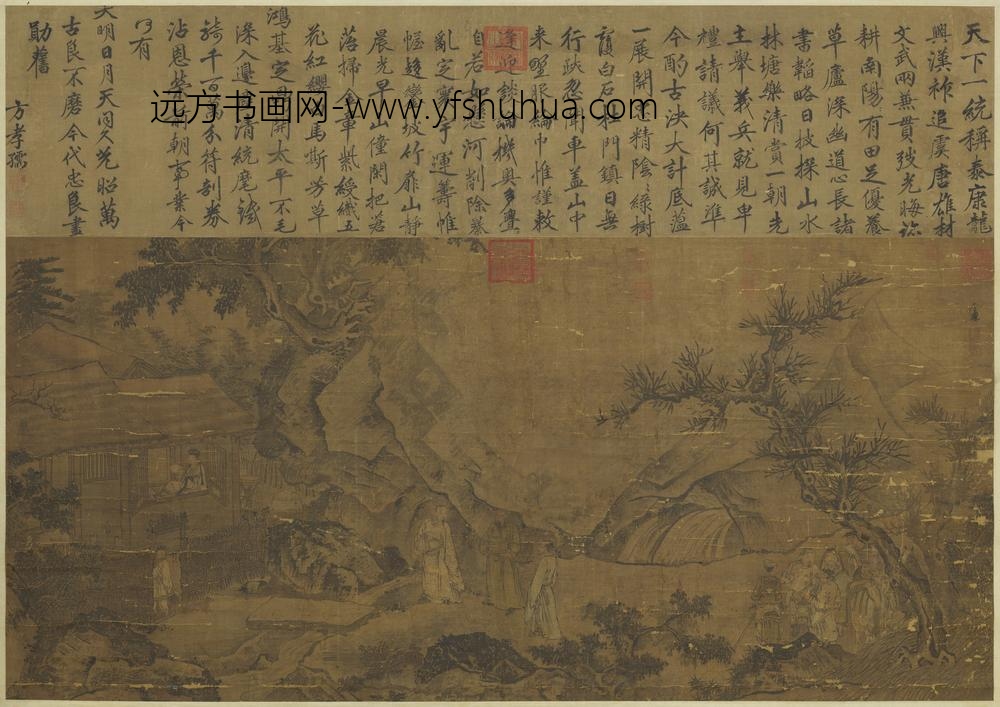 天下一統稱泰康龍
興漢祚追虞唐雄材
文武兩兼貫弢光晦
耕南陽有田足優養
草廬深幽道心長諸
書韜略日披探山水
林塘樂清賞一朝先
主舉義兵就見卑
禮請議何其誠準
今酌古決大計底蘊
一展開精陰〻綠樹
護白石門鎮日無
行跡忽聞車蓋山中
来野服綸巾惟謹敕
逢迎談論機奥多亹
自若河削除暴
亂定寰宇運籌帷
幄坡竹扉山靜
晨光早山僮閑把茗
落掃金章紫綬織五
花紅纓馬斯芳草
鴻基定開太平不毛
深入邊清統麾
綺千百分符剖券
沾恩榮前朝事業今
何有
大明日月天同久光昭萬
古良不磨今代忠良畫
勛舊
方孝孺
远方书画网-www.yfshuhua.com